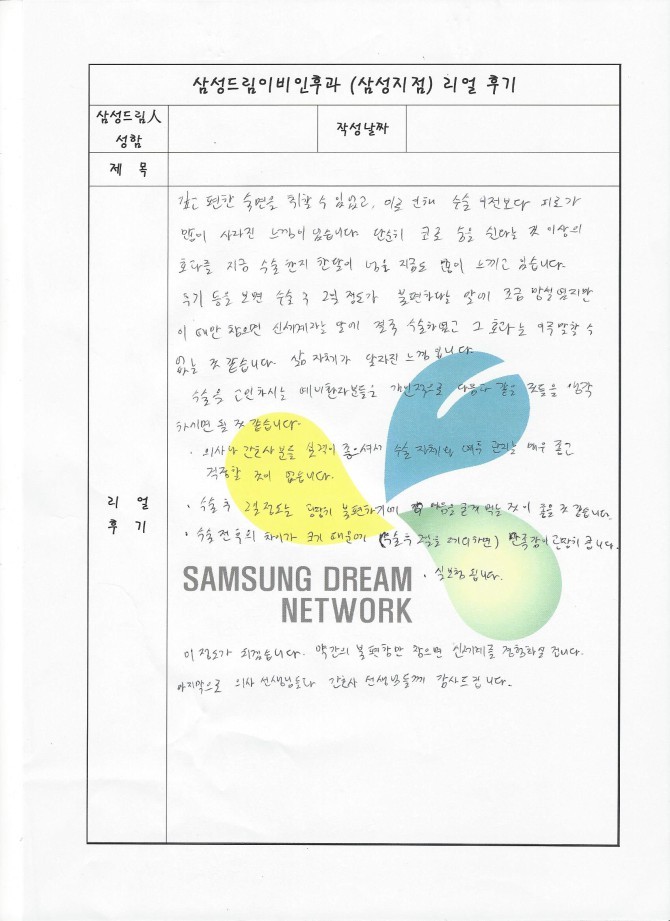 삼성드림이비인후과 (삼성지점) 리얼 후기
삼성드림人
성함
작성날짜
제 목
깊고 편한 숙면을 취할 수 있었고, 이로 인해 수술 이전보다 피로가
많이 사라진 느낌이 있습니다. 단순히 코로 숨을 쉰다는 것 이상의
효과를 지금 수술한지 한달이 넘은 지금도 많이 느끼고 있습니다.
후기 등을 보면 수술 후 2일 정도가 불편하다는 말에 조금 망설였지만
이 때만 참으면 신세계라는 말에 결국 수술하였고 그 효과는 이루 말할 수
없는 것 같습니다. 삶 자체가 달라진 느낌입니다.
수술을 고민하시는 예비환자분들은 개인적으로 다음과 같은 것들을 생각
하시면 될 것 같습니다.
· 의사나 간호사분들 실력이 좋으셔서 수술 자체나 예후 관리는 매우 좋고
걱정할 것이 없습니다.
· 수술 후 2일정도는 굉장히 불편하기에 마음을 굳게 먹는 것이 좋을 것 같습니다.
· 수술 전후의 차이가 크기 때문에 (수술후 2일을 제외하면) 만족감이 굉장히 큽니다.
· 실보험 됩니다.
리 얼
후 기
SAMSUNG DREAM
NETWORK
이 정도가 되겠습니다. 약간의 불편함만 참으면 신세계를 경험하실 겁니다.
마지막으로 의사 선생님들과 간호사 선생님들께 감사드립니다.